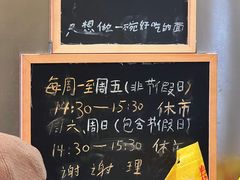 只想做一碗好吃的面
每周一至周五(非节假日)
14:30—15:30 休市
周六、周日(包含节假日)
14:30—15:30 休市
谢谢理